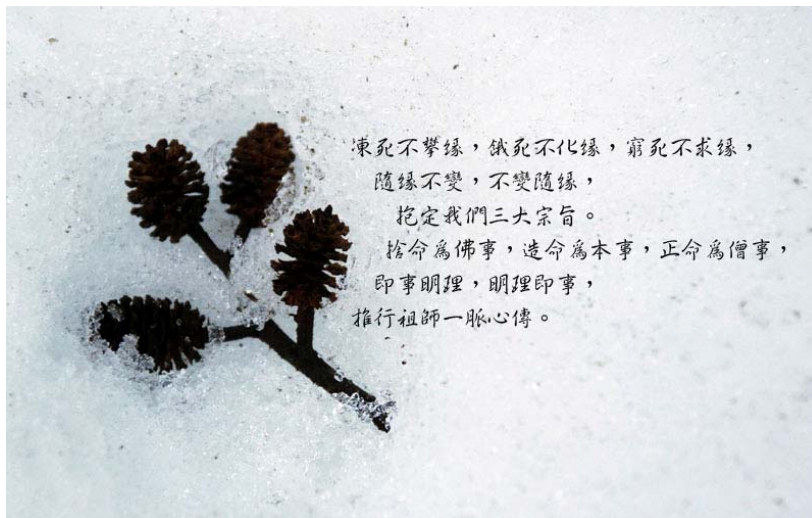 凍死不攀緣，餓死不化緣，窮死不求緣，
隨緣不變，不變隨緣，
抱定我們三大宗旨。
捨命為佛事，造命為本事，正命為僧事，
即事明理，明理即事，
推行祖師一脈心傳。